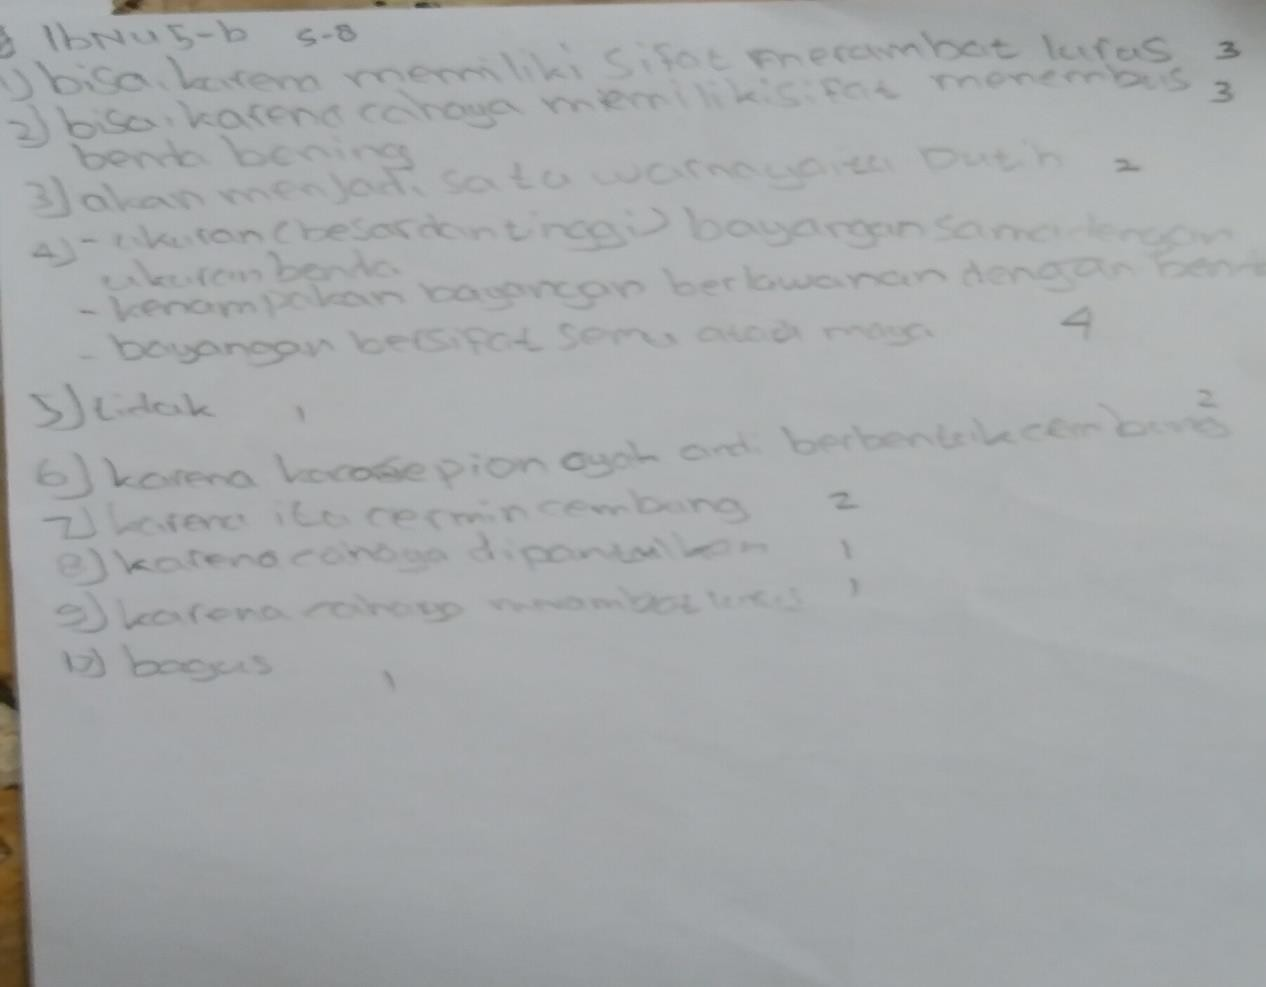 IbNU 5-b 5-8
1) bisa. karena memiliki sifat merambat lurus 3
2) bisa. karena cahaya memiliki sifat menembus 3
benda bening
3) akan menjadi satu warna yaitu Putih 2
4) - ukuran (besar dan tinggi) bayangan sama dengan
ukuran benda
- kenampakan bayangan berlawanan dengan ben
- bayangan bersifat semu atau maya 4
5) tidak 1
6) karena sepion ayah andi berbentuk cembung 2
7) karena itu cermin cembung 2
8) karena cahaya dipantulkan 1
9) karena cahaya lurus 1
10) bagus 1